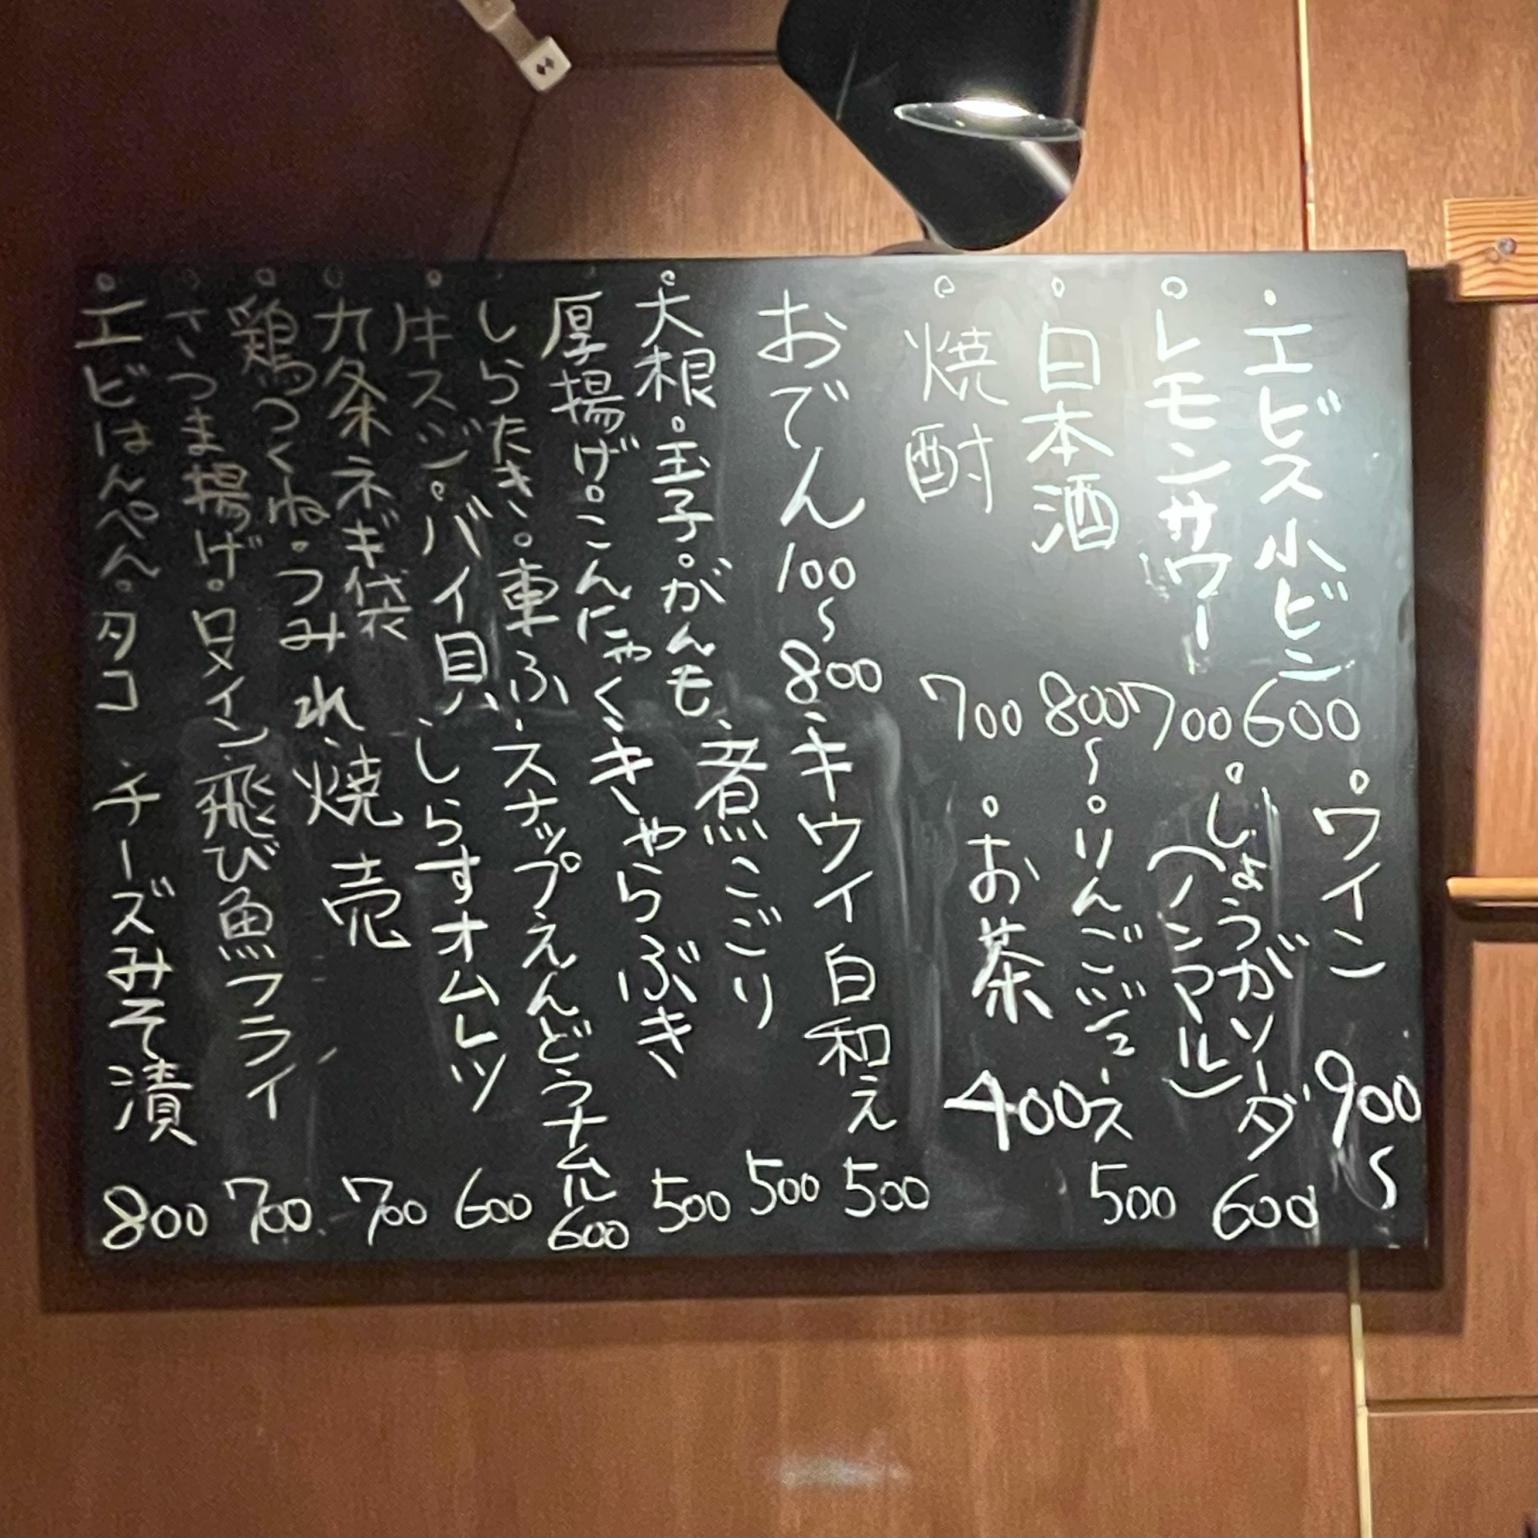 ・エビス小ビン 600
・レモンサワー 700
・日本酒 800〜
・焼酎 700
・ワイン 900〜
・しょうがソーダ 600
(ノンアル)
・りんごジュース 500
・お茶 400
おでん 100〜800
・大根・玉子・がんも
厚揚げ・こんにゃく
しらたき・車ふ
・牛スジ・バイ貝
・九条ネギ袋
・鶏つくね・つみれ
さつま揚げ・ロメイン
・エビはんぺん・タコ
・キウイ白和え 500
・煮こごり 500
・きゃらぶき 500
・スナップえんどうナムル 600
・しらすオムレツ 600
・焼売 700
・飛び魚フライ 700
・チーズみそ漬 800